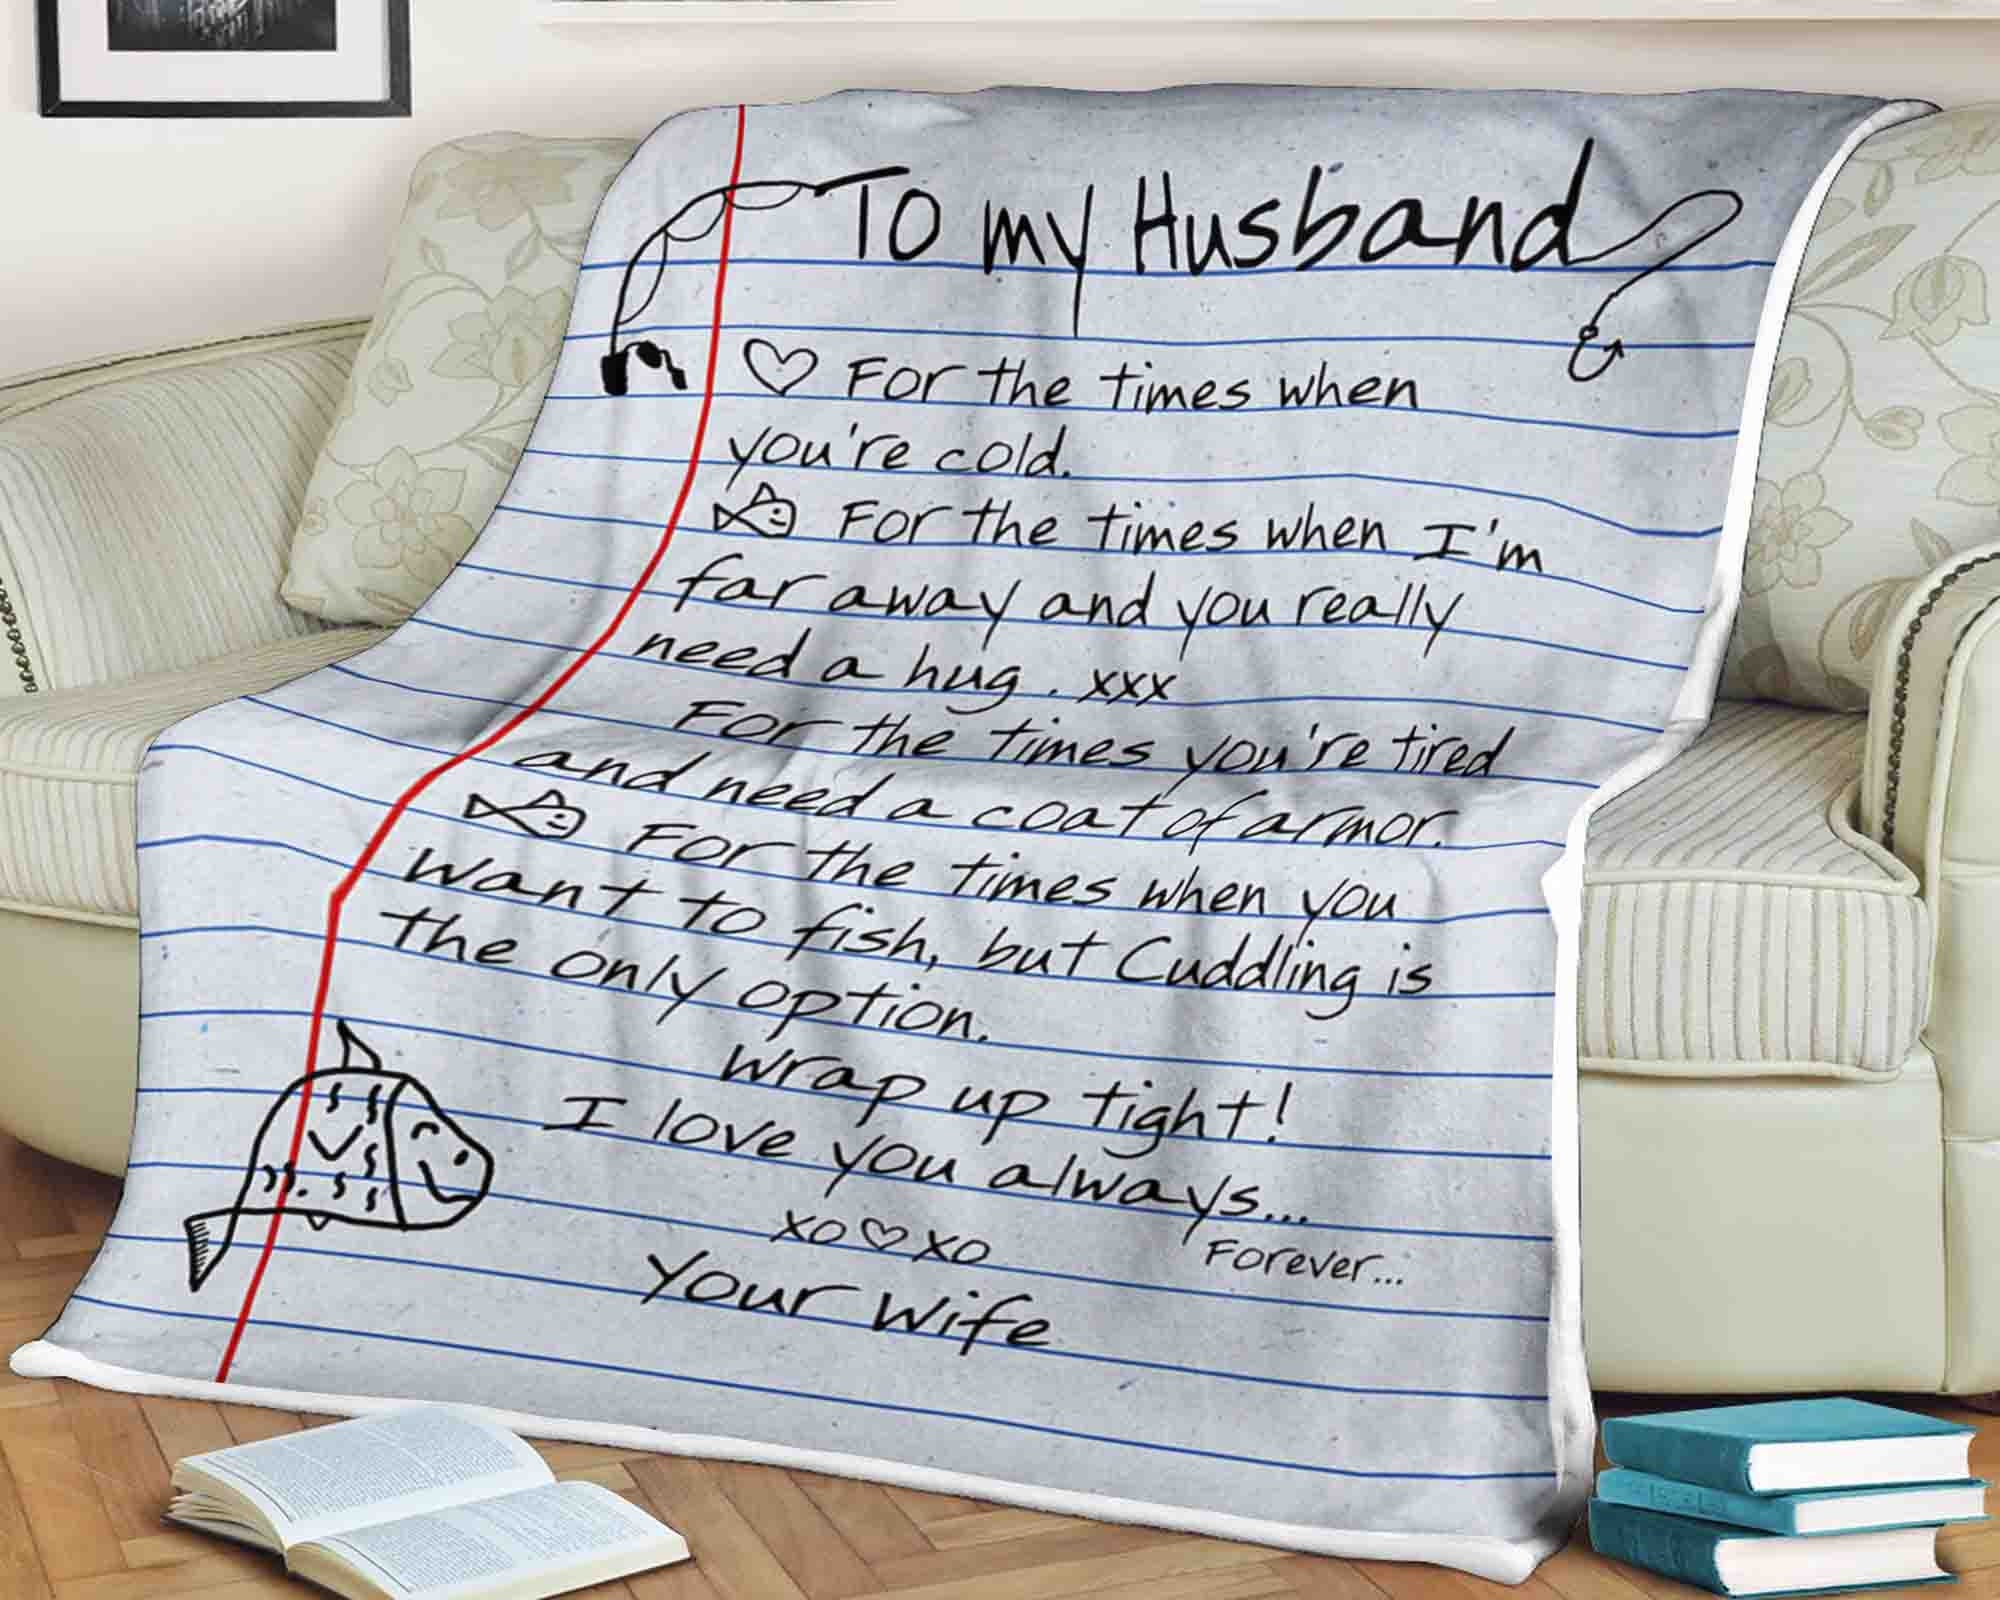 To my Husband
♡ For the times when
you're cold.
For the times when I'm
far away and you really
need a hug. xxx
For the times you're tired
and need a coat of armor.
For the times when you
want to fish, but Cuddling is
the only option.
Wrap up tight!
I love you always...
Forever...
xo♡xo
Your Wife